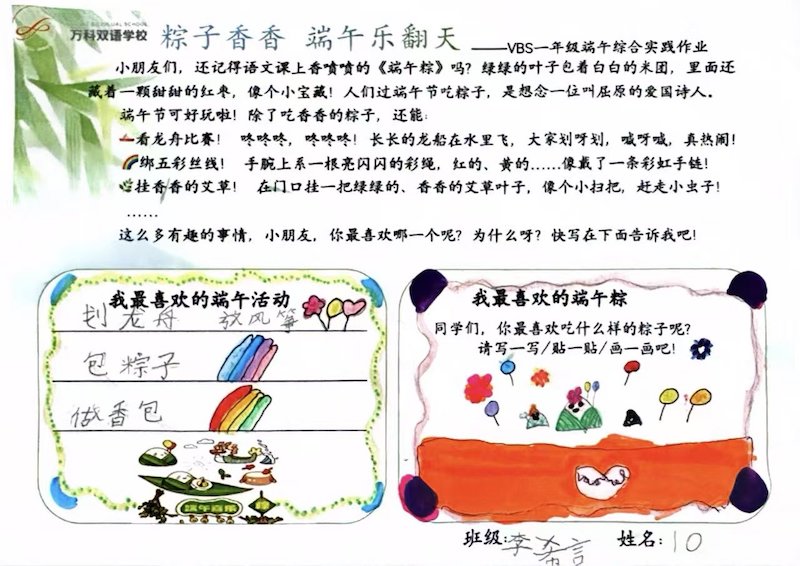 万科双语学校
粽子香香 端午乐翻天 ——VBS一年级端午综合实践作业
小朋友们，还记得语文课上香喷喷的《端午粽》吗？绿绿的叶子包着白白的米团，里面还
藏着一颗甜甜的红枣，像个小宝藏！人们过端午节吃粽子，是想念一位叫屈原的爱国诗人。
端午节可好玩啦！除了吃香香的粽子，还能：
看龙舟比赛！ 咚咚咚，咚咚咚！长长的龙船在水里飞，大家划呀划，喊呀喊，真热闹！
绑五彩丝线！ 手腕上系一根亮闪闪的彩绳，红的、黄的……像戴了一条彩虹手链！
挂香香的艾草！ 在门口挂一把绿绿的、香香的艾草叶子，像个小扫把，赶走小虫子！
……
这么多有趣的事情，小朋友，你最喜欢哪一个呢？为什么呀？快写在下面告诉我吧！
我最喜欢的端午活动
划龙舟 放风筝
包粽子
做香包
端午喜乐
我最喜欢的端午粽
同学们，你最喜欢吃什么样的粽子呢？
请写一写/贴一贴/画一画吧！
班级：李希言 姓名：10